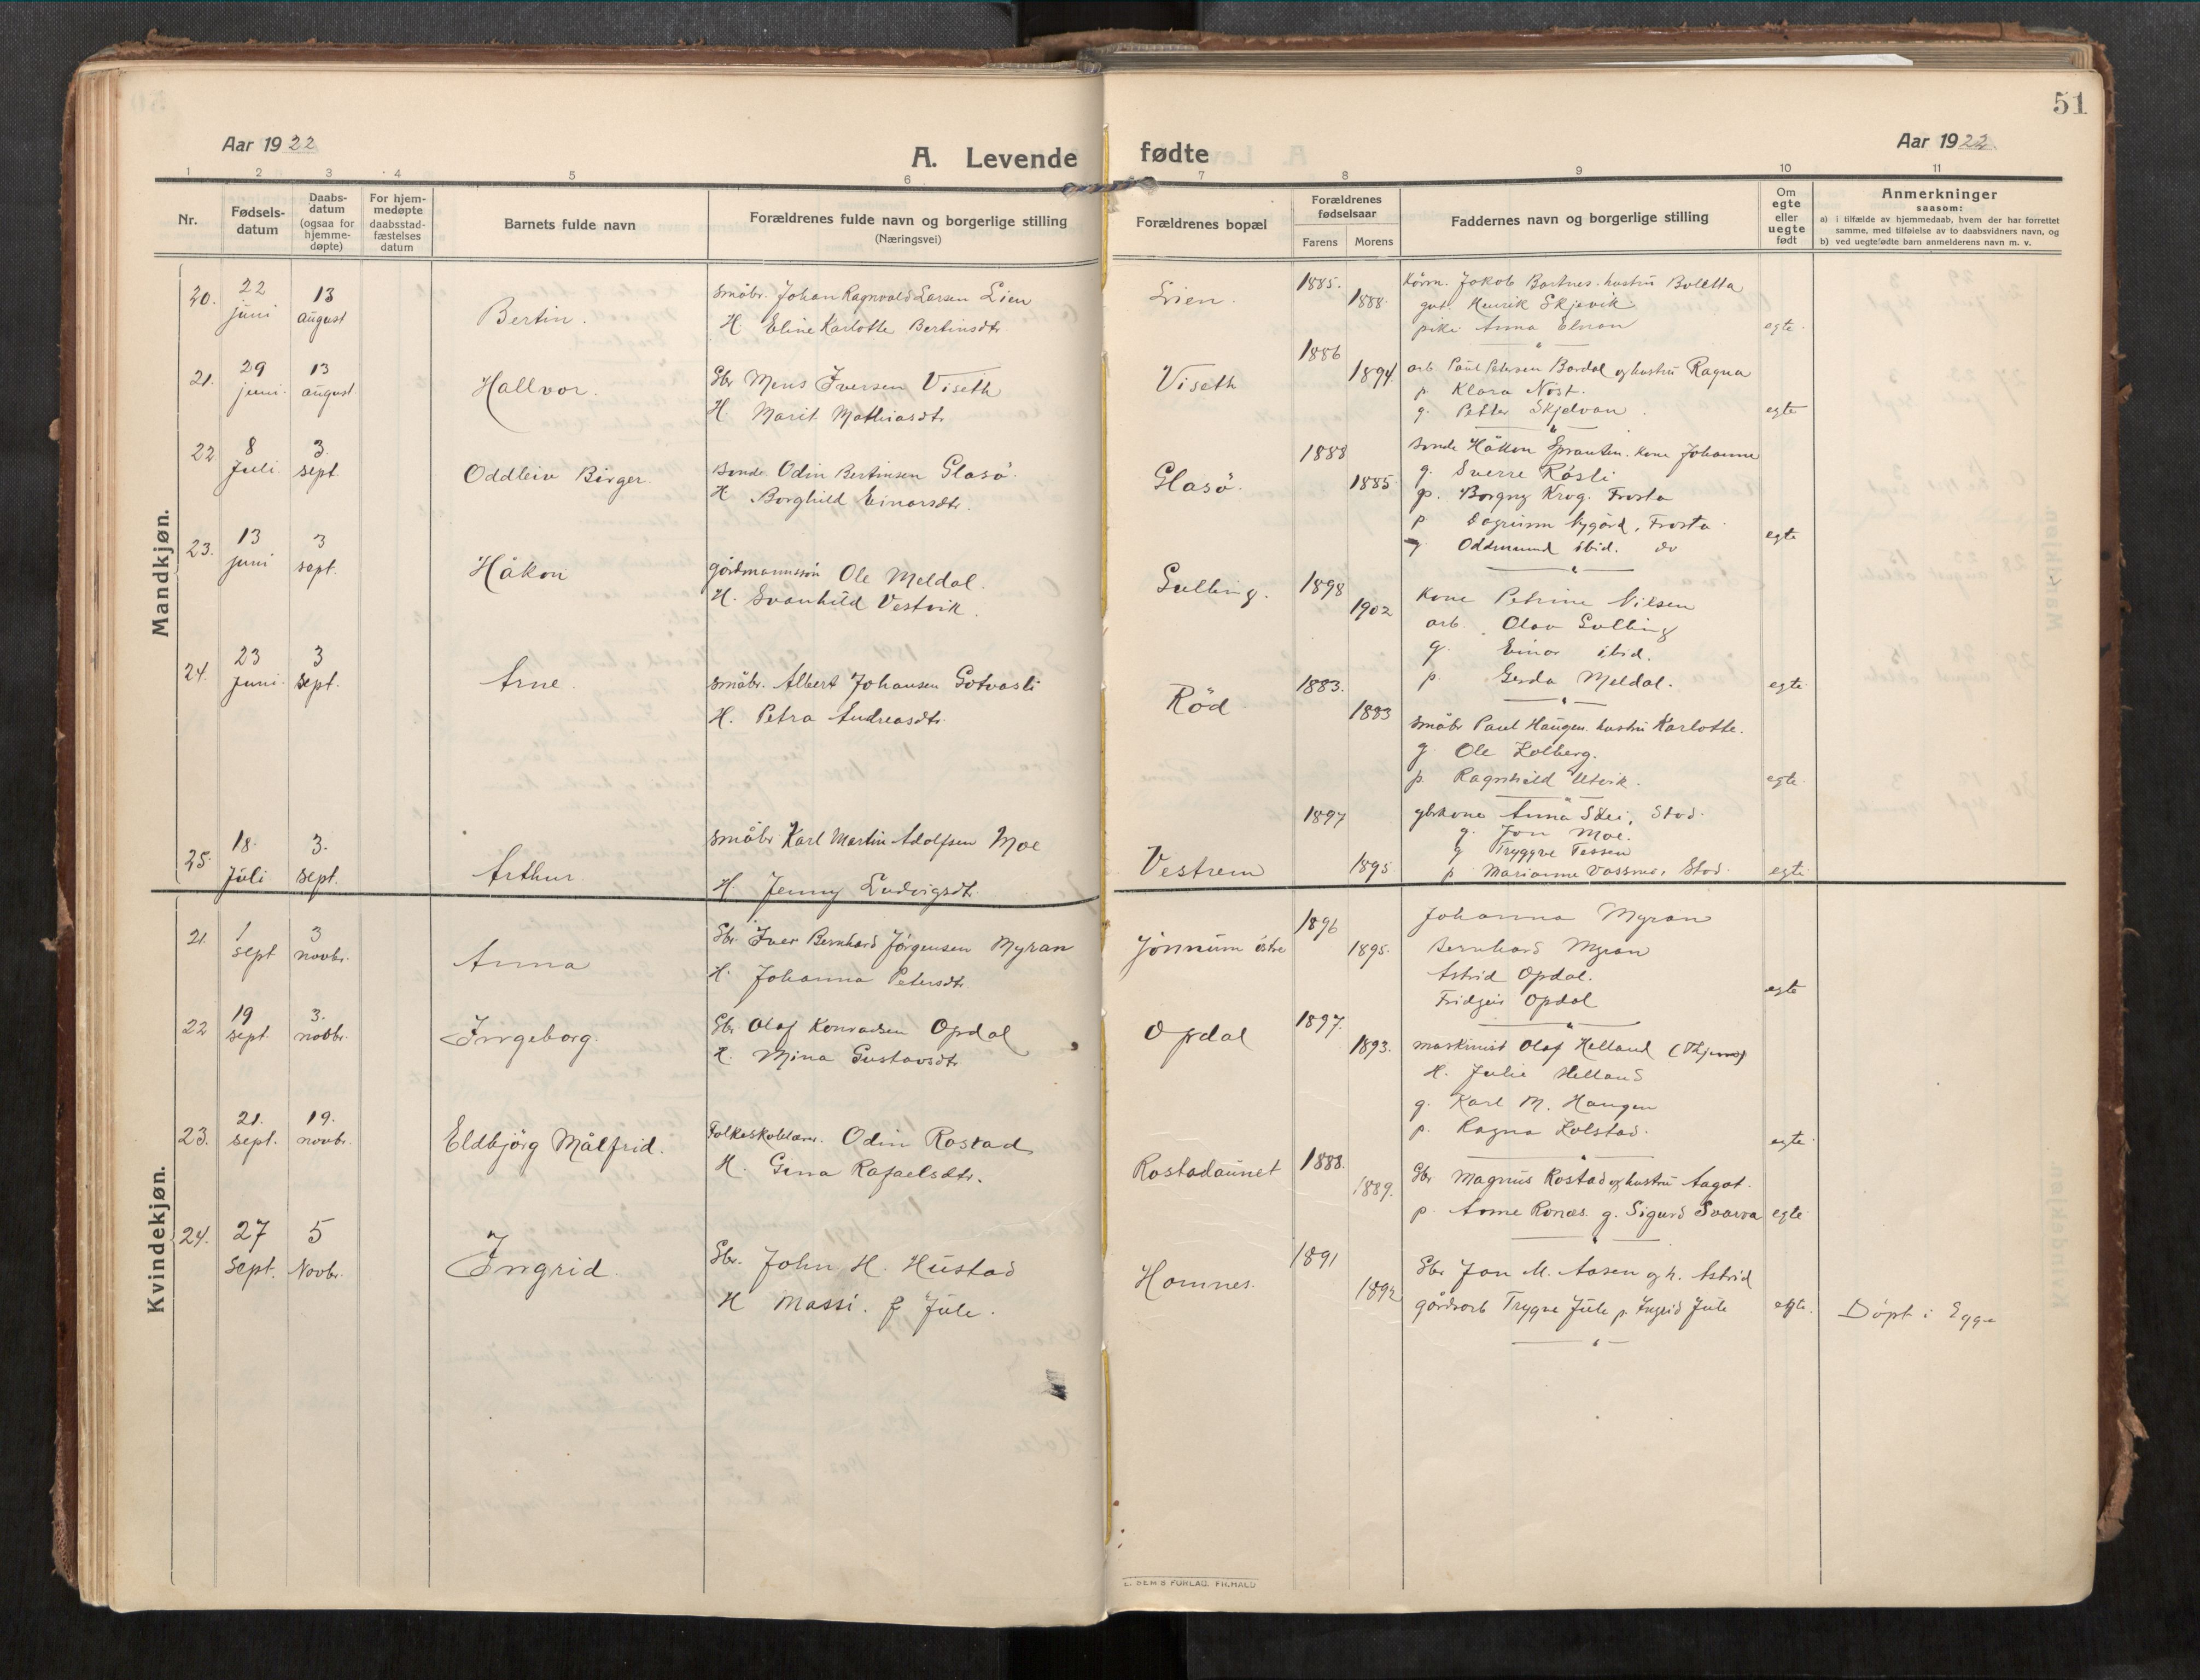 51
Aar 1922
A. Levende fødte
Aar 1922
1 2 3 4 5 6 7 8 9 10 11
Nr.
Fødsels-
datum
Daabs-
datum
(ogsaa for
hjemme-
døpte)
For hjem-
medøpte
daabsstad-
fæstelses
datum
Barnets fulde navn
Forældrenes fulde navn og borgerlige stilling
(Næringsvei)
Forældrenes bopæl
Forældrenes
fødselsaar
Farens Morens
Faddernes navn og borgerlige stilling
Om
egte
eller
uegte
født
Anmerkninger
saasom:
a) i tilfælde av hjemmedaab, hvem der har forrettet
samme, med tilføielse av to daabsvidners navn, og
b) ved uegtefødte barn anmelderens navn m. v.
Mandkjøn.
20. 22 juni 13 august Bertin.
småbr. Johan Ragnvald Larsen Lien
H. Eline Karlotte Bertinsdtr
Lien. 1885. 1888.
Jakob Bartnes. hustru Boletta
gut. Henrik Skjevik
pike Anna Elnan egte.
21. 29 juni. 13 august. Hallvor.
Gbr Mens Iversen Viseth
H. Marit Mathiasdtr.
Viseth 1886 1894.
arb Paul Petersen Bardal og hustru Ragna
p. Klara Nöst.
g. Petter Skjelvan. egte
22 8 Juli. 3. sept. Oddleiv Birger.
Bonde Odin Bertinsen Glasö.
H. Borghild Einarsdtr.
Glasö. 1888 1885.
Håkon kone Johanne
g. Sverre Råsli
p. Borgny Krog. Frosta
p Nygård, Frosta
g Oddmund ibid. do egte
23. 13 juni 3 sept. Håkon
gårdmannssön Ole Meldal.
H. Svanhild Vestvik.
Gulling. 1898 1902
Kone Petrine Nilsen
arb. Olav Gulling
g. Einar ibid.
p. Gerda Meldal. egte
24. 23 Juni. 3 sept. Arne.
småbr. Albert Johansen Gotvasli
H. Petra Andreasdtr.
Röd 1883. 1883
småbr Paul Haugen. hustru Karlotte.
g Ole Holberg.
p. Ragnhild Utvik. egte.
25. 18. Juli 3. sept. Arthur.
småbr Karl Martin Adolfsen Moe
H. Jenny Ludvigsdtr.
Vestrem 1897 1895
gbrkone Anna Skei, Stod.
g. Jon Moe.
g Tryggve Tessen
p Marianne Stod. egte
Kvindekjøn.
21. 1 sept 3 novbr. Anna
Gbr. Iver Bernhard Jörgensen Myran
H. Johanna Petersdtr.
Jönnum östre 1896 1895.
Johanna Myran
Bernhard Myran
Astrid Opdal.
Opdal egte
22 19 sept. 3. novbr. Ingeborg.
Gbr. Olaf Konradsen Opdal
H. Mina Gustavsdtr
Opdal 1897. 1893.
maskinist Olaf Helland
H. Julie Helland
g. Karl M. Haugen
p. Ragna Holstad. egte.
23. 21. sept. 19. novbr. Eldbjörg Målfrid.
Folkeskolelærer. Odin Rostad
H. Gina Rafaelsdtr.
Rostadaunet 1888. 1889.
Gbr Magnus Rostad og hustru Aagot.
p. Anne Ronæs. g. Sigurd Svarva egte
24. 27 Sept. 5 Novbr. Ingrid.
Gbr. John H. Hustad
H Massi. f Jule.
Homnes. 1891 1892
Gbr Jon M. Aasen og h. Astrid
gårdsarb Trygve Jule p. Ingrid Jule egte. Döpt i Egge